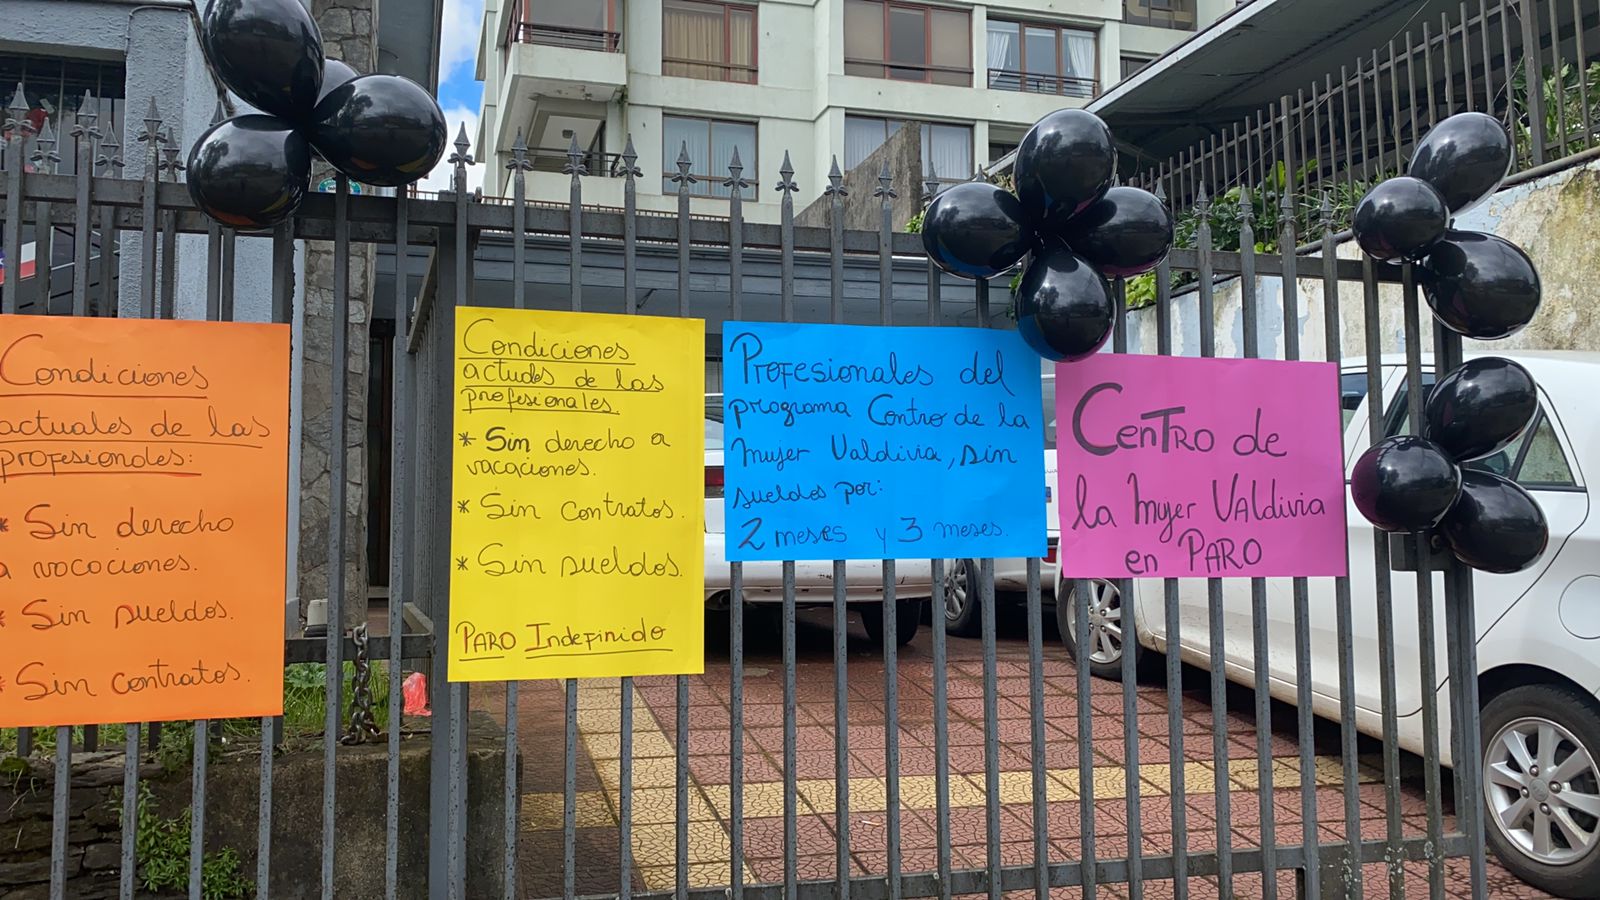 Condiciones
actuales de las
profesionales:
* Sin derecho
a vacaciones.
* Sin sueldos.
* Sin contratos.
Condiciones
actudes de las
profesionales.
* Sin derecho a
vacaciones.
* Sin contratos.
* Sin sueldos.
PARO Indefinido
Profesionales del
programa Centro de la
Mujer Valdivia, sin
sueldos por:
2 meses y 3 meses.
CenTRO de
la Mujer VAldivia
en PARO